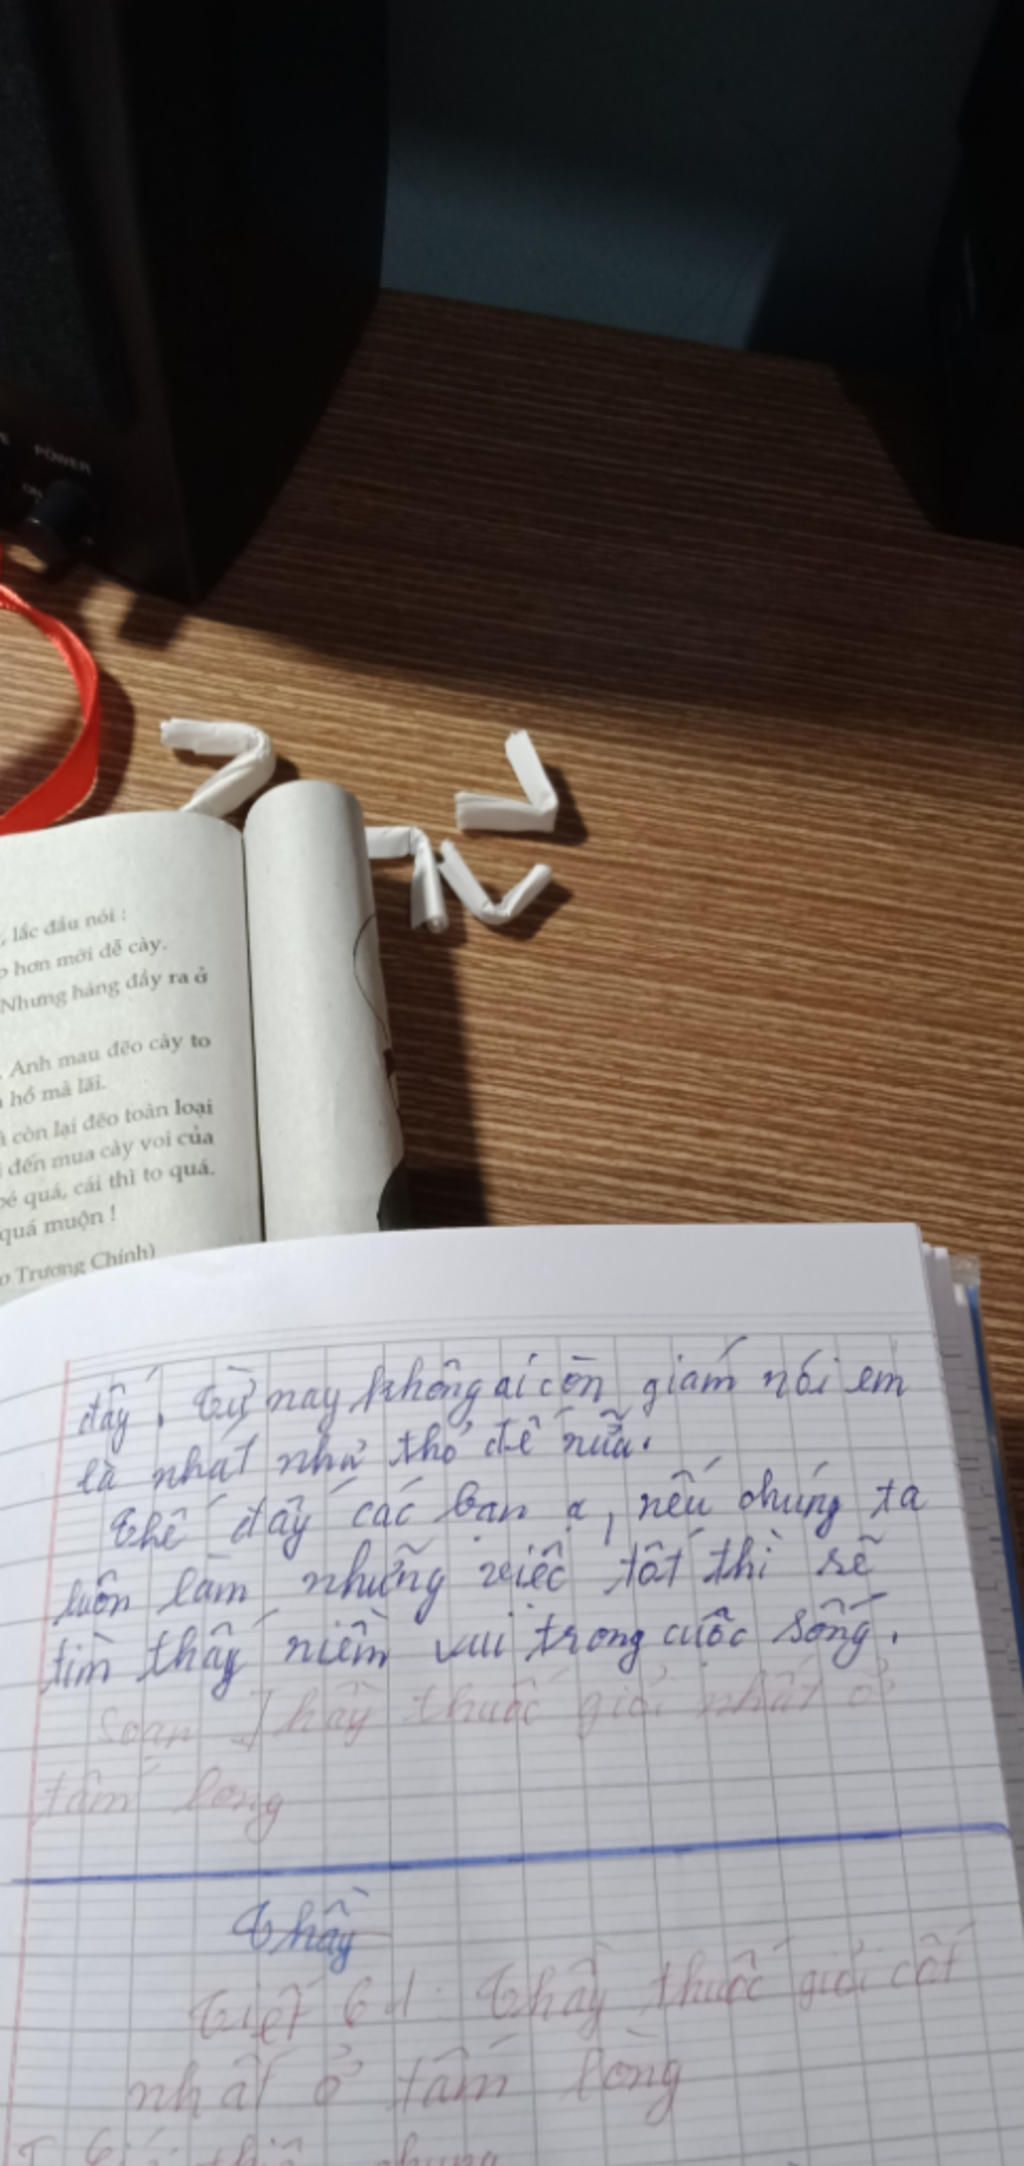 POWER
ON
, lắc đầu nói :
hơn mới dễ cày.
Nhưng háng đẩy ra ở
. Anh mau đẽo cày to
hồ mà lãi.
còn lại đẽo toàn loại
đến mua cày voi của
bé quá, cái thì to quá.
quá muộn !
Trương Chính)
đấy. Từ nay không ai còn giám nói em
là nhát như thỏ đế nữa.
Thế đấy các bạn ạ, nếu chúng ta
luôn làm những việc tốt thì sẽ
tìm thấy niềm vui trong cuộc sống.
Soạn Thầy thuốc giỏi nhất ở
tấm lòng
Thầy
Tiết 61: Thầy thuốc giỏi cốt
nhất ở tấm lòng